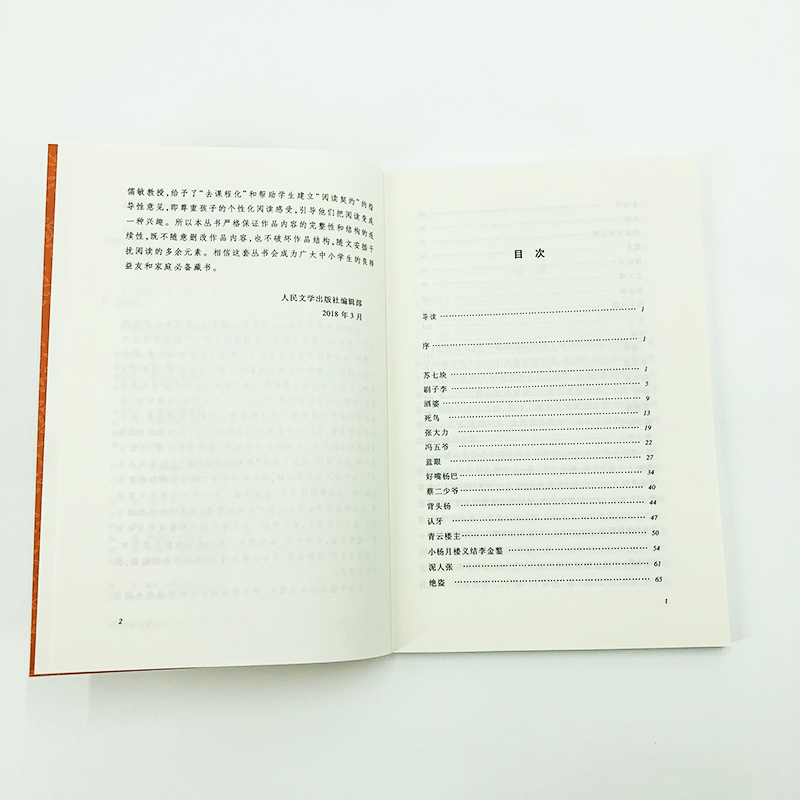 儒敏教授，给予了“去课程化”和帮助学生建立“阅读契约”的指
导性意见，即尊重孩子的个性化阅读感受，引导他们把阅读变成
一种兴趣。所以本丛书严格保证作品内容的完整性和结构的连
续性，既不随意删改作品内容，也不破坏作品结构，随文安插干
扰阅读的多余元素。相信这套丛书会成为广大中小学生的良师
益友和家庭必备藏书。
人民文学出版社编辑部
2018 年 3 月
2
目 次
导读 1
序 1
苏七块 1
刷子李 5
酒婆 9
死鸟 13
张大力 19
冯五爷 22
蓝眼 27
好嘴杨巴 34
蔡二少爷 40
背头杨 44
认牙 47
青云楼主 50
小杨月楼义结李金鏊 54
泥人张 61
绝盗 65
1